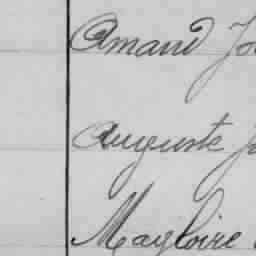 Amand Jo
Auguste J
Magloire